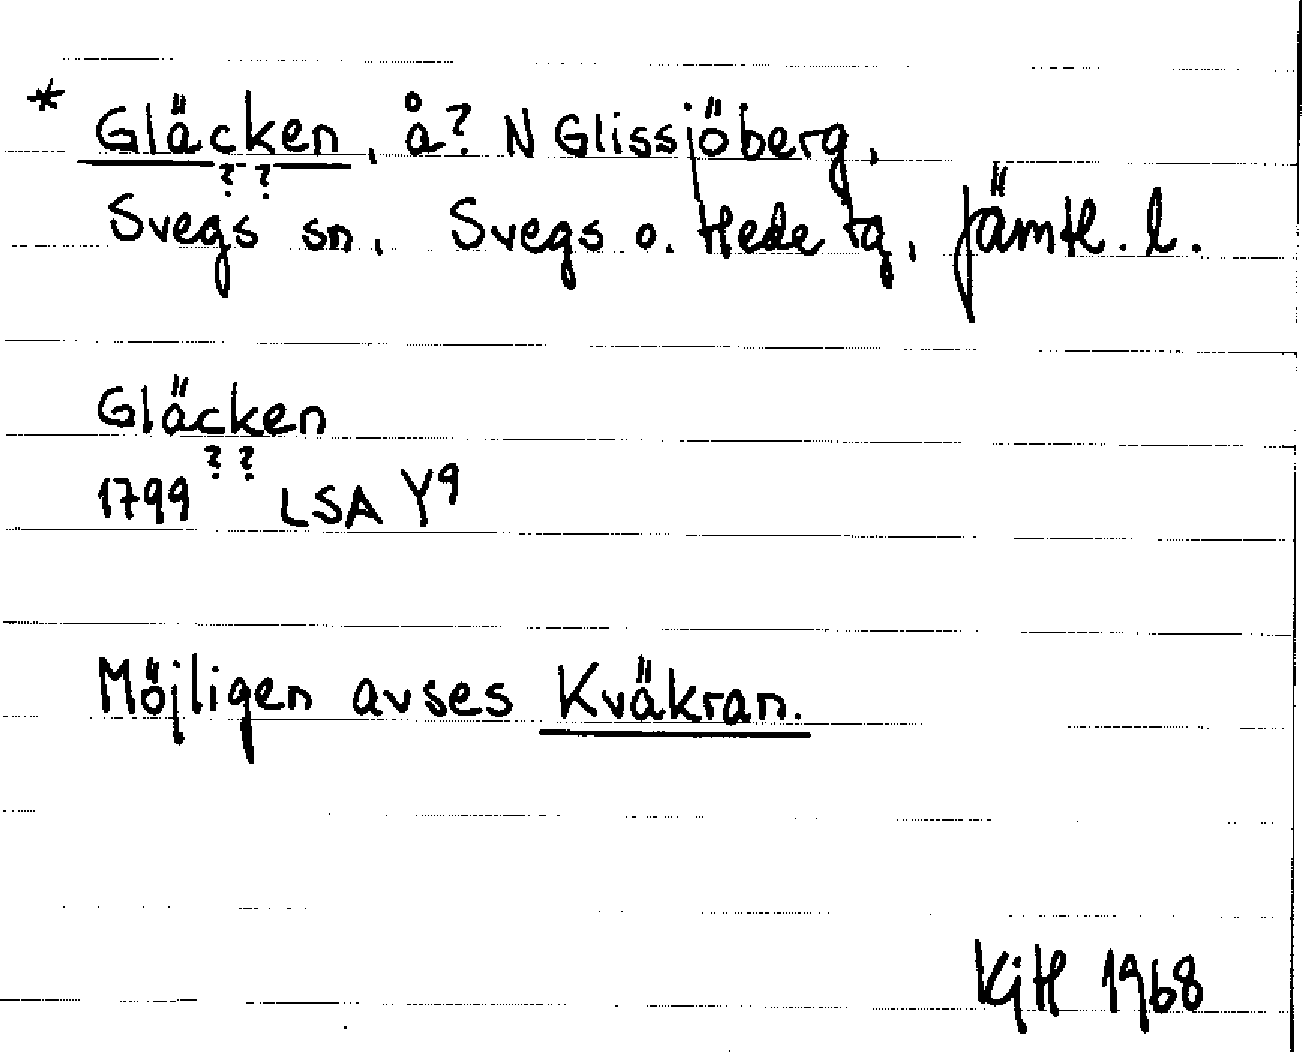 * Gläcken, å? N Glissjöberg,
? ?
Svegs sn, Svegs o. Hede tg, Jämtl. l.
Gläcken
? ?
1799 LSA Y9
Möjligen avses Kväkran.
KjH 1968